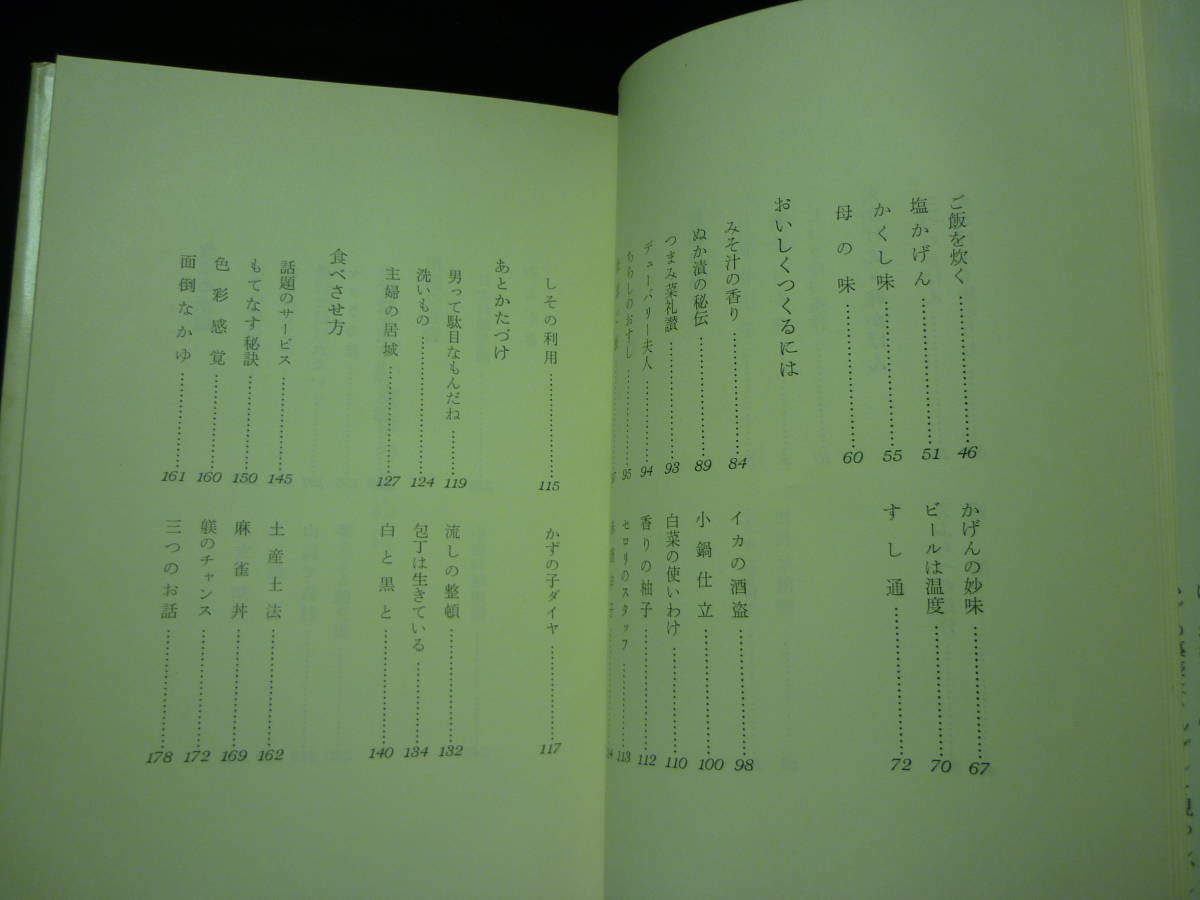 ご飯を炊く……………46
塩かげん……………51
かくし味……………55
母の味……………60
かげんの妙味……………67
ビールは温度……………70
すし通……………72
おいしくつくるには
みそ汁の香り……………84
ぬか漬の秘伝……………89
つまみ菜礼讃……………93
デューバリー夫人……………94
ちらしのおすし……………95
イカの酒盗……………98
小鍋仕立……………100
白菜の使いわけ……………110
香りの柚子……………112
セロリのスタッフ……………113
しその利用……………115
かずの子ダイヤ……………117
あとかたづけ
男って駄目なもんだね……………119
洗いもの……………124
主婦の居城……………127
流しの整頓……………132
包丁は生きている……………134
白と黒と……………140
食べさせ方
話題のサービス……………145
もてなす秘訣……………150
色彩感覚……………160
面倒なかゆ……………161
土産土法……………162
麻雀丼……………169
躾のチャンス……………172
三つのお話……………178